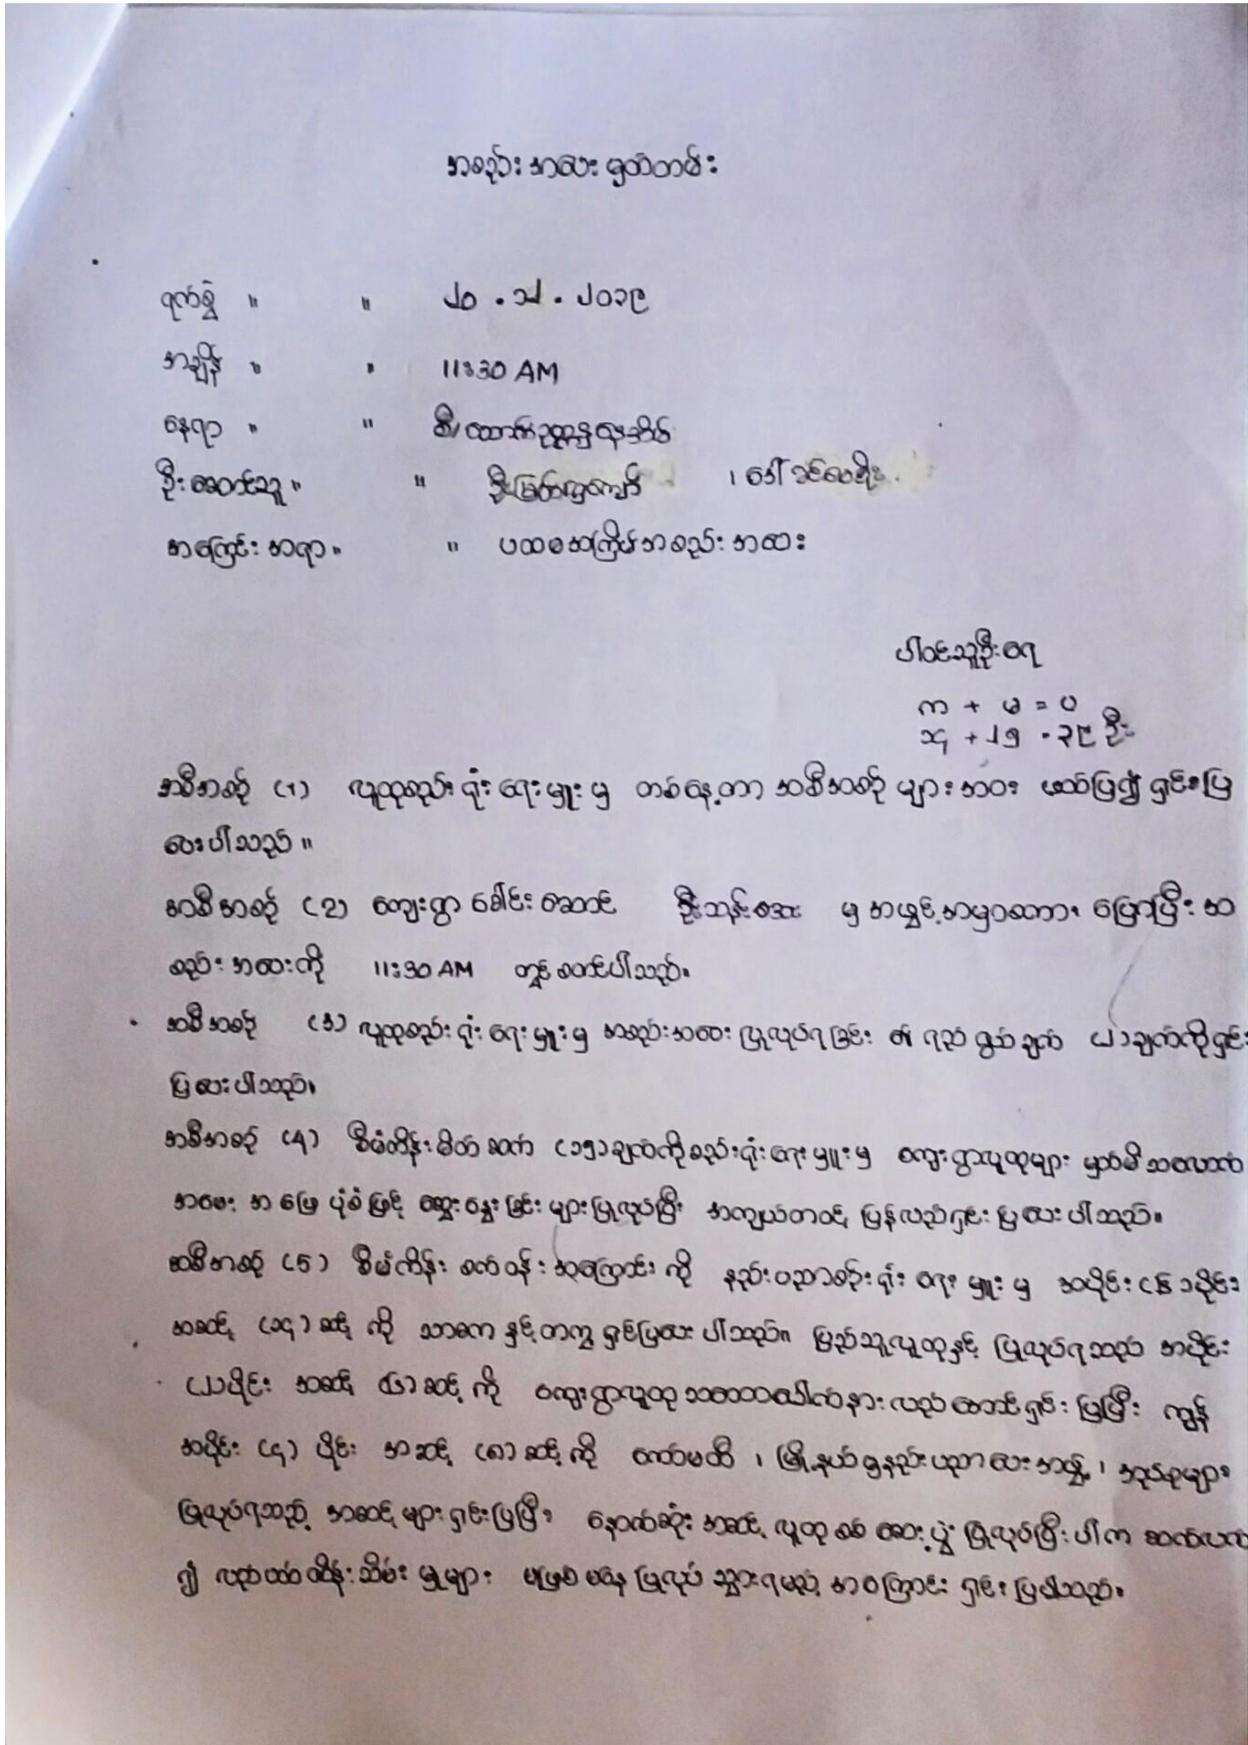 အစည်းအဝေး မှတ်တမ်း
ရက်စွဲ ။ ။ ၂၀ . ၁၂ . ၂၀၁၉
အချိန် ။ ။ 11:30 AM
နေရာ ။ ။
ဦးဆောင်သူ ။ ။ ဦးမြတ်ထွဋ်ကျော် ၊ ဒေါ်ခင်လေငြိမ်း
အကြောင်းအရာ ။ ။ ပထမအကြိမ်အစည်းအဝေး
ပါဝင်သူဦးရေ
က + မ = ပ
၁၄ + ၂၅ = ၃၉ ဦး
အစီအစဉ် (1) လူထုစည်းရုံးရေးမှူးမှ တစ်နေ့တာ အစီအစဉ်များအား ဖတ်ပြ၍ ရှင်းပြ
ပေးပါသည်။
အစီအစဉ် (2) ကျေးရွာခေါင်းဆောင် ဦးသန်းအေး မှ အဖွင့်အမှာစကား ပြောပြီး အ
စည်းအဝေးကို 11:30 AM တွင် စတင်ပါသည်။
အစီအစဉ် (3) လူထုစည်းရုံးရေးမှူးမှ အစည်းအဝေးပြုလုပ်ရခြင်း ၏ ရည်ရွယ်ချက် (၂)ချက်ကိုရှင်း
ပြပေးပါသည်။
အစီအစဉ် (4) စီမံကိန်းမိတ်ဆက် (၁၅)ချက်ကိုစည်းရုံးရေးမှူးမှ ကျေးရွာလူထုများ မှတ်မိသလောက်
အမေး အဖြေ ပုံစံဖြင့် ဆွေးနွေးခြင်းများပြုလုပ်ပြီး အကျယ်တဝင့် ပြန်လည်ရှင်းပြပေးပါသည်။
အစီအစဉ် (5) စီမံကိန်း စက်ဝန်းအကြောင်း ကို နည်းပညာစည်းရုံးရေးမှူးမှ အပိုင်း (၆)ပိုင်း
အဆင့် (၁၄)ဆင့် ကို သာဓက နှင့်တကွ ရှင်းပြပေးပါသည်။ ပြည်သူလူထုနှင့် ပြုလုပ်ရသည့် အပိုင်း
(၂)ပိုင်း အဆင့် (၆)ဆင့် ကို ကျေးရွာလူထု သဘောပေါက်နားလည်အောင်ရှင်းပြပြီး ကျန်
အပိုင်း (၄) ပိုင်း အဆင့် (၈) ဆင့် ကို ကော်မတီ ၊ မြို့နယ်မှနည်းပညာပေးအဖွဲ့ ၊ အုပ်စုများ
ပြုလုပ်ရသည့် အဆင့်များရှင်းပြပြီး နောက်ဆုံးအဆင့် လူထုစစ်ဆေးပွဲ ပြုလုပ်ပြီးပါက ဆက်လက်
၍ လည်ပတ်ထိန်းသိမ်းမှုများ မဖြစ်မနေ ပြုလုပ်သွားရမည့် အကြောင်း ရှင်းပြပါသည်။